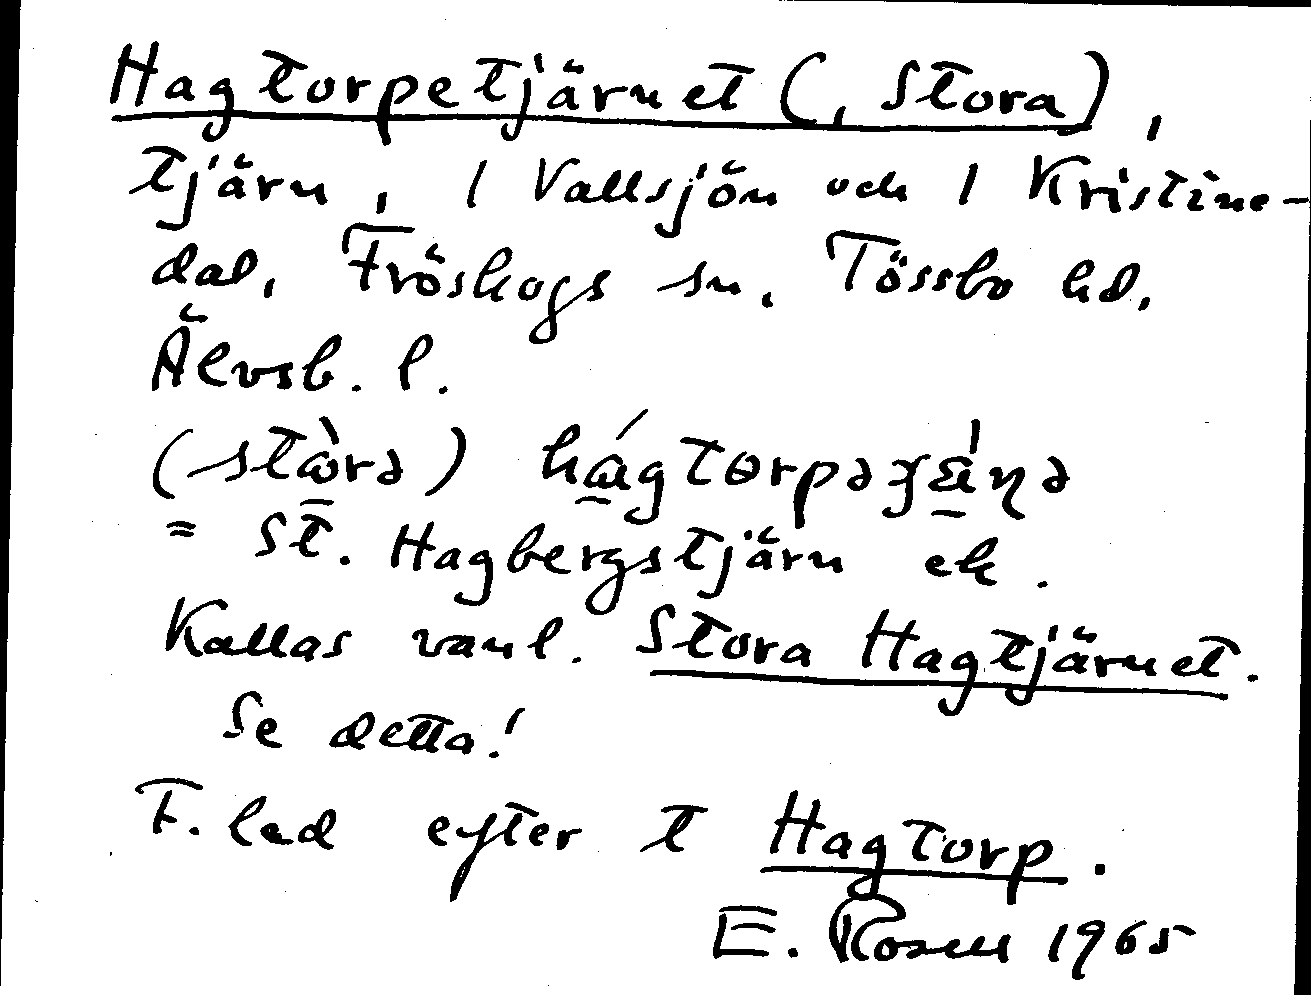 Hagtorpetjärnet (, Stora),
tjärn, 1 Vallsjön och 1 Kristine-
dal, Fröskogs sn. Tössbo hd.
Älvsb. l.
(stɷ̀rə) hágtorpə
= St. Hagbergstjärn ek.
Kallas vanl. Stora Hagtjärnet.
Se detta!
F. led efter t Hagtorp.
E. Rosell 1965